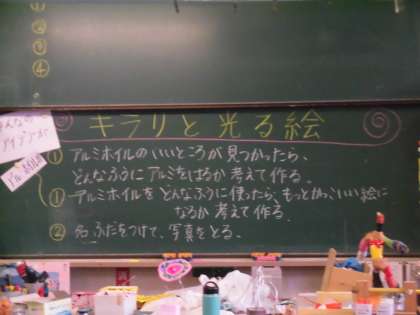 ①
②
③
④
キラリと光る絵
みんなの
アイデアが
① アルミホイルのいいところが見つかったら、
どんなふうにアルミをはるか考えて作る。
① アルミホイルをどんなふうに使ったら、もっとかっこいい絵に
なるか考えて作る。
② 名ふだをつけて、写真をとる。